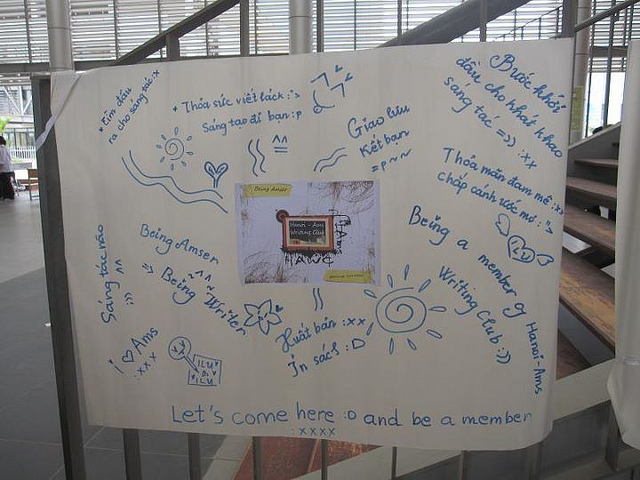 * Tìm đâu
ra cho sáng tác :x
* Thỏa sức viết lách :">
Sáng tạo đi bạn :p
^^
=
Giao lưu
Kết bạn
=p ~ ~
Bước khởi
đầu cho khát khao
sáng tác =)) :xx
Thỏa mãn đam mê :xx
chắp cánh ước mơ :">
ILU
Being Amser
Hanoi - Ams
Writing Club
HAWC
Being Amser
=> Being ^^^ Writer
Sáng tác nào
^^
:))
Being a member of Hanoi-Ams
Writing Club :))
I ♡ Ams
:xxx
ILU
ILU
Xuất bản :xx
In sách :D
Let's come here :D and be a member
:xxxx